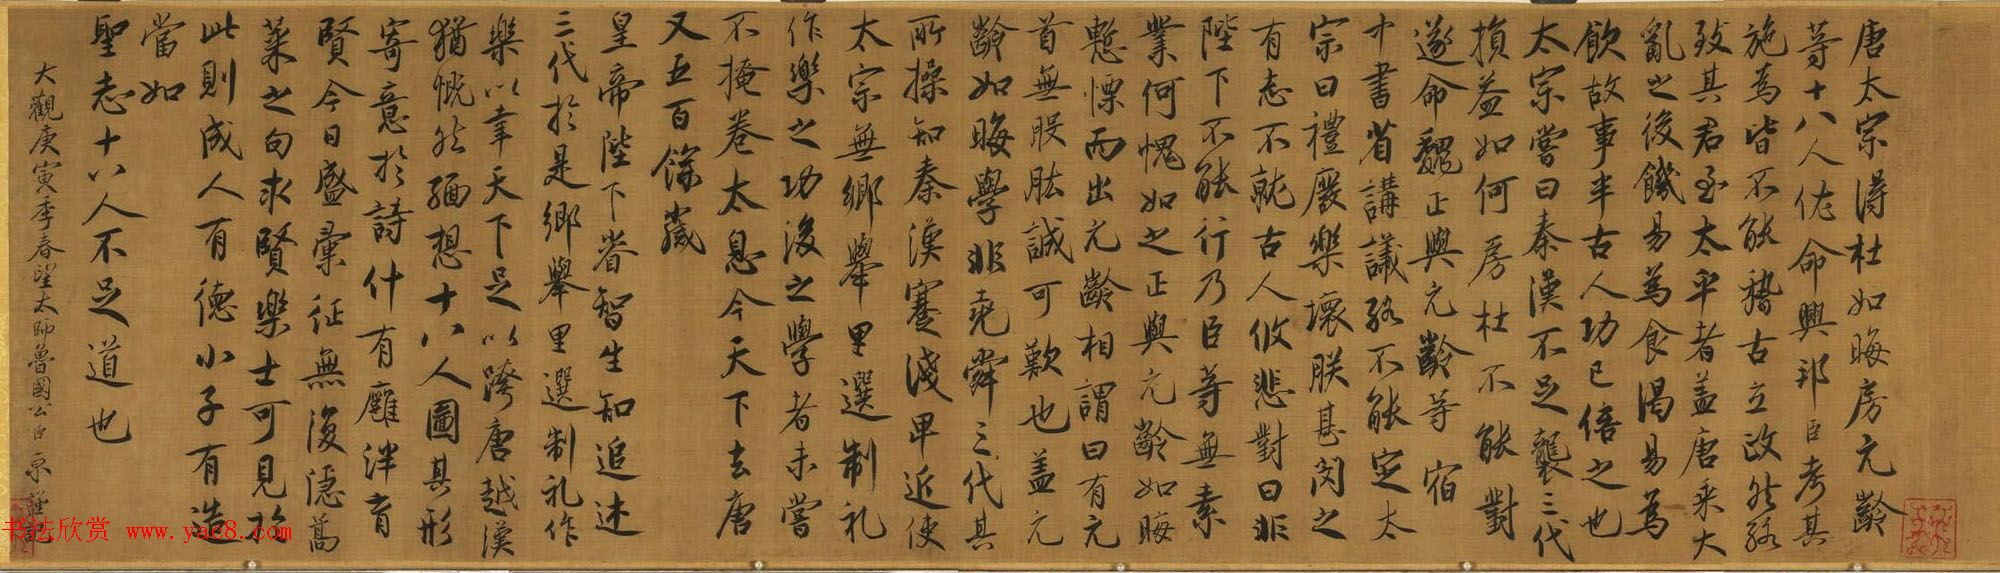 唐太宗得杜如晦房元齡
等十八人佐命興邦臣考其
施為皆不能稽古立政然終
致其君至太平者盖唐乘大
亂之後饑易為食渴易為
飲故事半古人功已倍之也
太宗嘗曰秦漢不足襲三代
損益如何房杜不能對
遂命魏正與元齡等宿
中書省講議終不能定太
宗曰禮廢樂壞朕甚閔之
有志不就古人攸悲對曰非
陛下不能行乃臣等無素
業何愧如之正與元齡如晦
慙慄而出元齡相謂曰有元
首無股肱誠可歎也盖元
齡如晦學非堯舜三代其
所操知秦漢蹇淺卑近使
太宗無鄉舉里選制礼
作樂之功後之學者未嘗
不掩卷太息今天下去唐
又五百餘歲
皇帝陛下睿智生知追述
三代於是鄉舉里選制礼作
樂以幸天下足以跨唐越漢
猶慨然緬想十八人圖其形
寄意於詩什有廱泮育
賢今日盛彙征無復隱蒿
萊之句求賢樂士可見於
此則成人有德小子有造
當如
聖志十八人不足道也
大觀庚寅季春望太師魯國公臣京謹記
书法欣赏 www.yac8.com